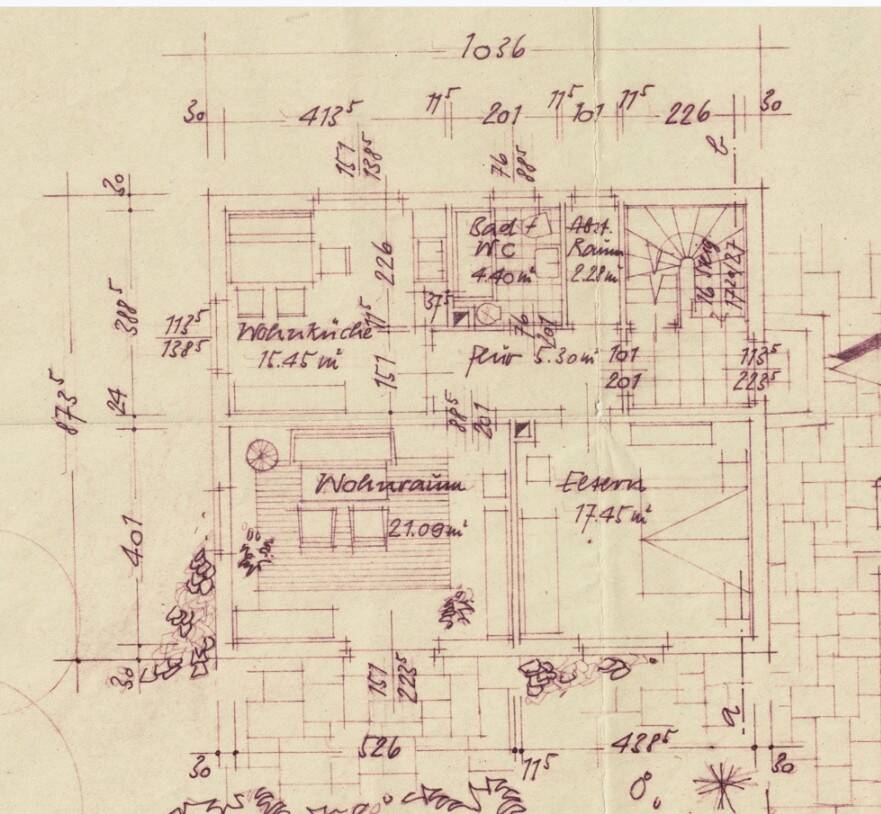 1036
30 413⁵ 11⁵ 201 11⁵ 101 11⁵ 226 30
151
138⁵
76
88⁵
b
30
388⁵
24
401
30
873⁵
113⁵
138⁵
Bad +
WC
4.40 m²
Abst.
Raum
2.28 m²
226
11⁵
151
37⁵
76
201
Wohnküche
15.45 m²
Flur 5.30 m²
101
201
113⁵
223⁵
88⁵
201
Wohnraum
21.09 m²
Eltern
17.45 m²
151
223⁵
a
30 526 11⁵ 438⁵ 30